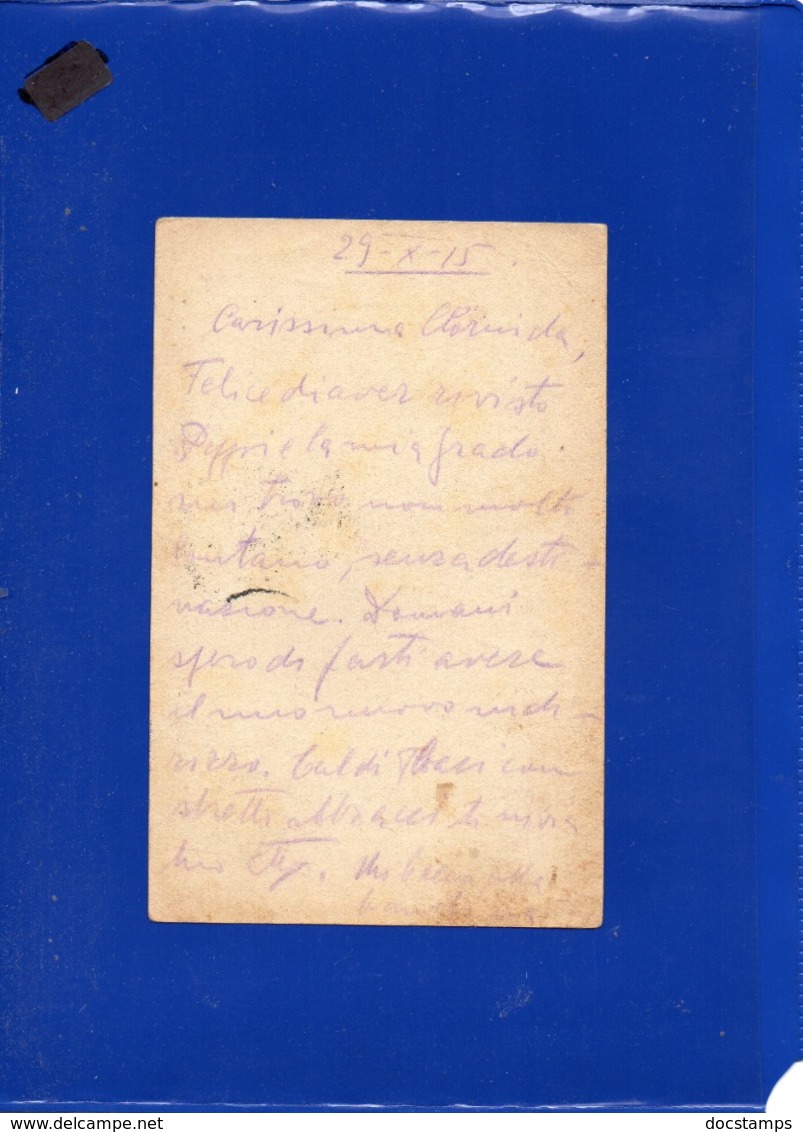 29-X-15.
Carissima Clorinda,
Felice di aver rivisto
e la mia grado
mi trovo non molto
lontano, senza desti-
nazione. Domani
spero di farti avere
il mio nuovo indi-
rizzo. Caldi baci con
stretti abbracci ti invia
tuo
delcampe.net
docstamps